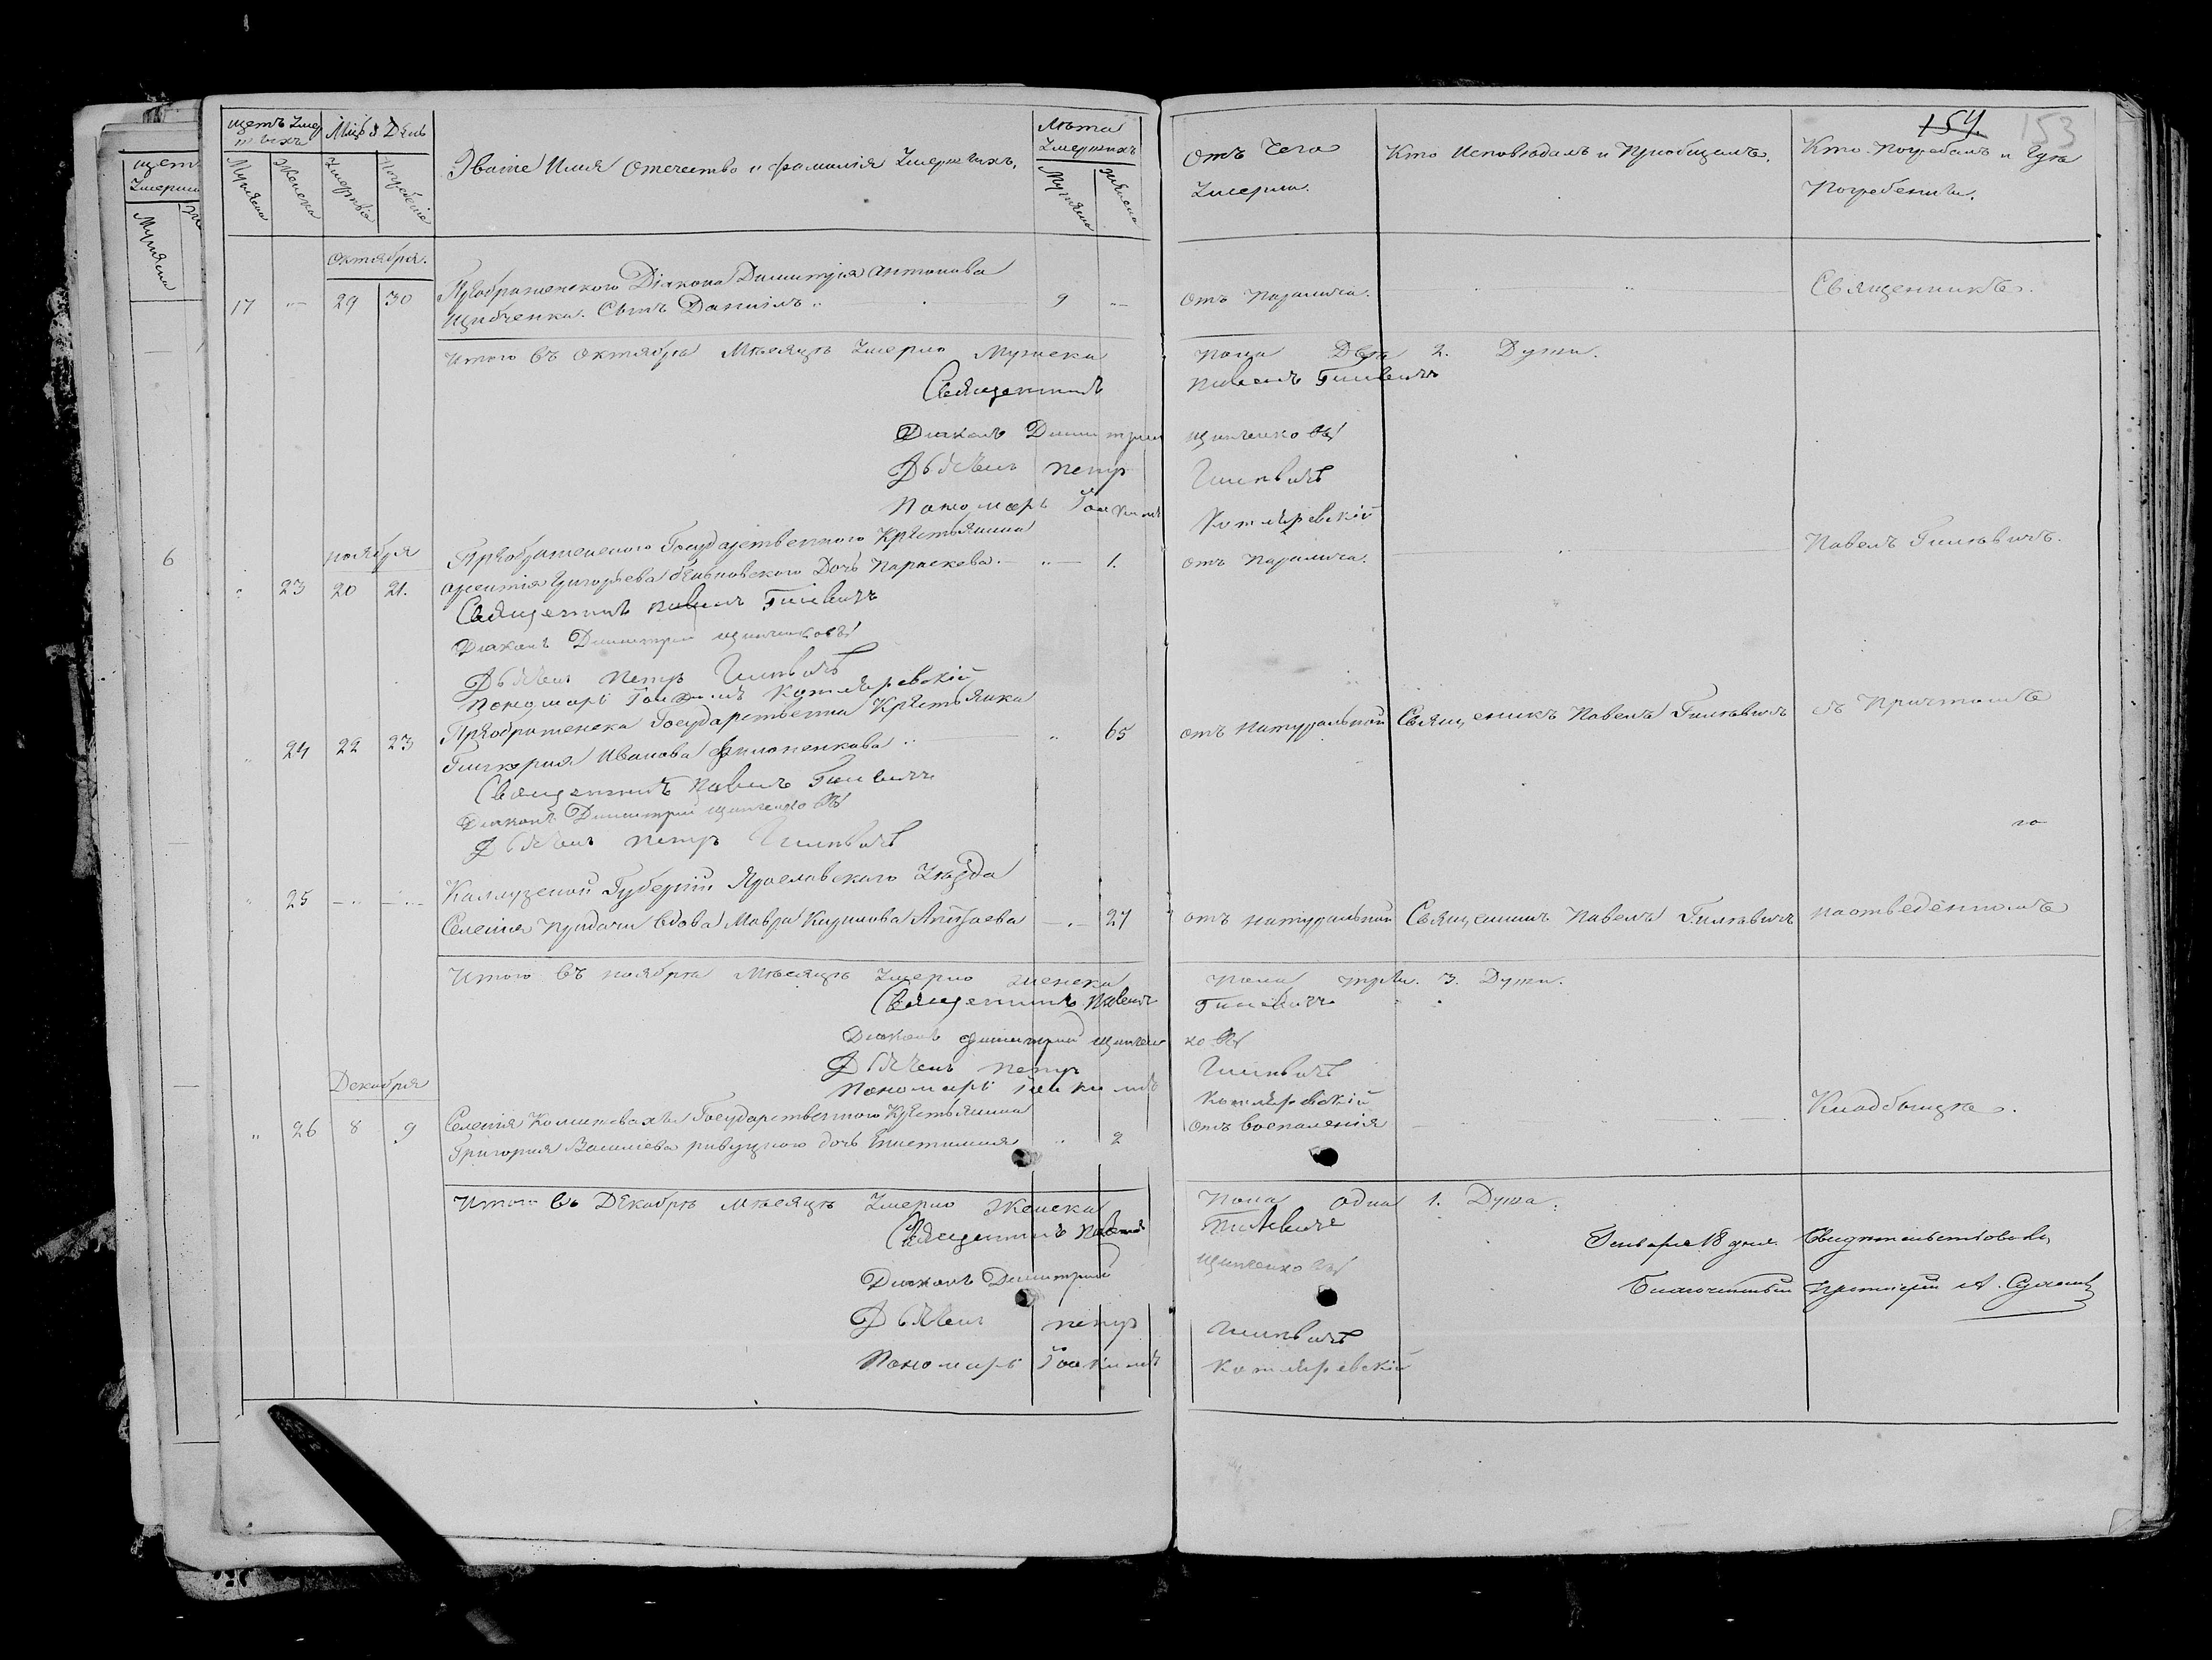 щетъ Умер
шихъ
Мцъ и День
Званіе Имя Отечество и фамилія Умершихъ.
Лѣта
Умершихъ
Мужеска
Женска
Умертвія
Погребенія
Мужеска
Женска
Отъ Чего
Умерли.
Кто Исповѣдалъ и Пріобщалъ.
Кто Погребалъ и Гдѣ
Погребены.
154.
153
щет
Умерши
Мужеска
6
Октября.
17 29 30 Преображенскаго Діякона Димитрія Антонова
Щибченка. Сынъ Даніилъ 9 отъ Паралича. Священникъ.
Итого въ Октябрѣ Мѣсяцѣ Умерло Мужеска Пола Два 2. Души.
Священникъ Павелъ Гилевичъ
Діаконъ Димитрій Щипченковъ
Дьячекъ Петръ Гилевичъ
Пономарь Іоакимъ Котляревскій
Ноября
Преображенскаго Государственнаго Крестьянина
23 20 21. Григорьева Дочь Параскева. 1. отъ Паралича. Павелъ Гилевичъ.
Священникъ Павелъ Гилевичъ
Діаконъ Димитрій Щипченковъ
Дьячекъ Петръ Гилевичъ
Пономарь Іоакимъ Котляревскій
Преображенска Государственна Крестьянка
24 22 23 Гликерия Иванова Филоненкова 65 отъ Натуральной Священикъ Павелъ Гилевичъ съ Причтомъ
Священникъ Павелъ Гилевичъ
Діаконъ Димитрій Щипченковъ
Дьячекъ Петръ Гилевичъ
на
Калужской Губерніи Ярославского Уѣзда
25 Селенія вдова Мавра Кирилова 27 отъ Натуральной Священникъ Павелъ Гилевичъ наотведенномъ
Итого въ ноябрѣ Мѣсяцѣ Умерло женска Пола три. 3. Души.
Священникъ Павелъ Гилевичъ
Діаконъ Димитрій Щипченковъ
Дьячекъ Петръ Гилевичъ
Пономарь Іоакимъ Котляревскій
Декабря
Селенія Государственнаго Крестьянина
26 8 9 Григория Василіева дочь Епистимия 2 отъ воспаленія Кладбыщѣ.
Итого въ Декабрѣ мѣсяцѣ Умерло Женска Пола одна 1. Душа.
Священникъ Павелъ Гилевичъ
Діаконъ Димитрій Щипченковъ
Дьячекъ Петръ Гилевичъ
Пономарь Іоакимъ Котляревскій
Генваря 18 дня Свидетельствовалъ
Благочинный Протоіерей А.